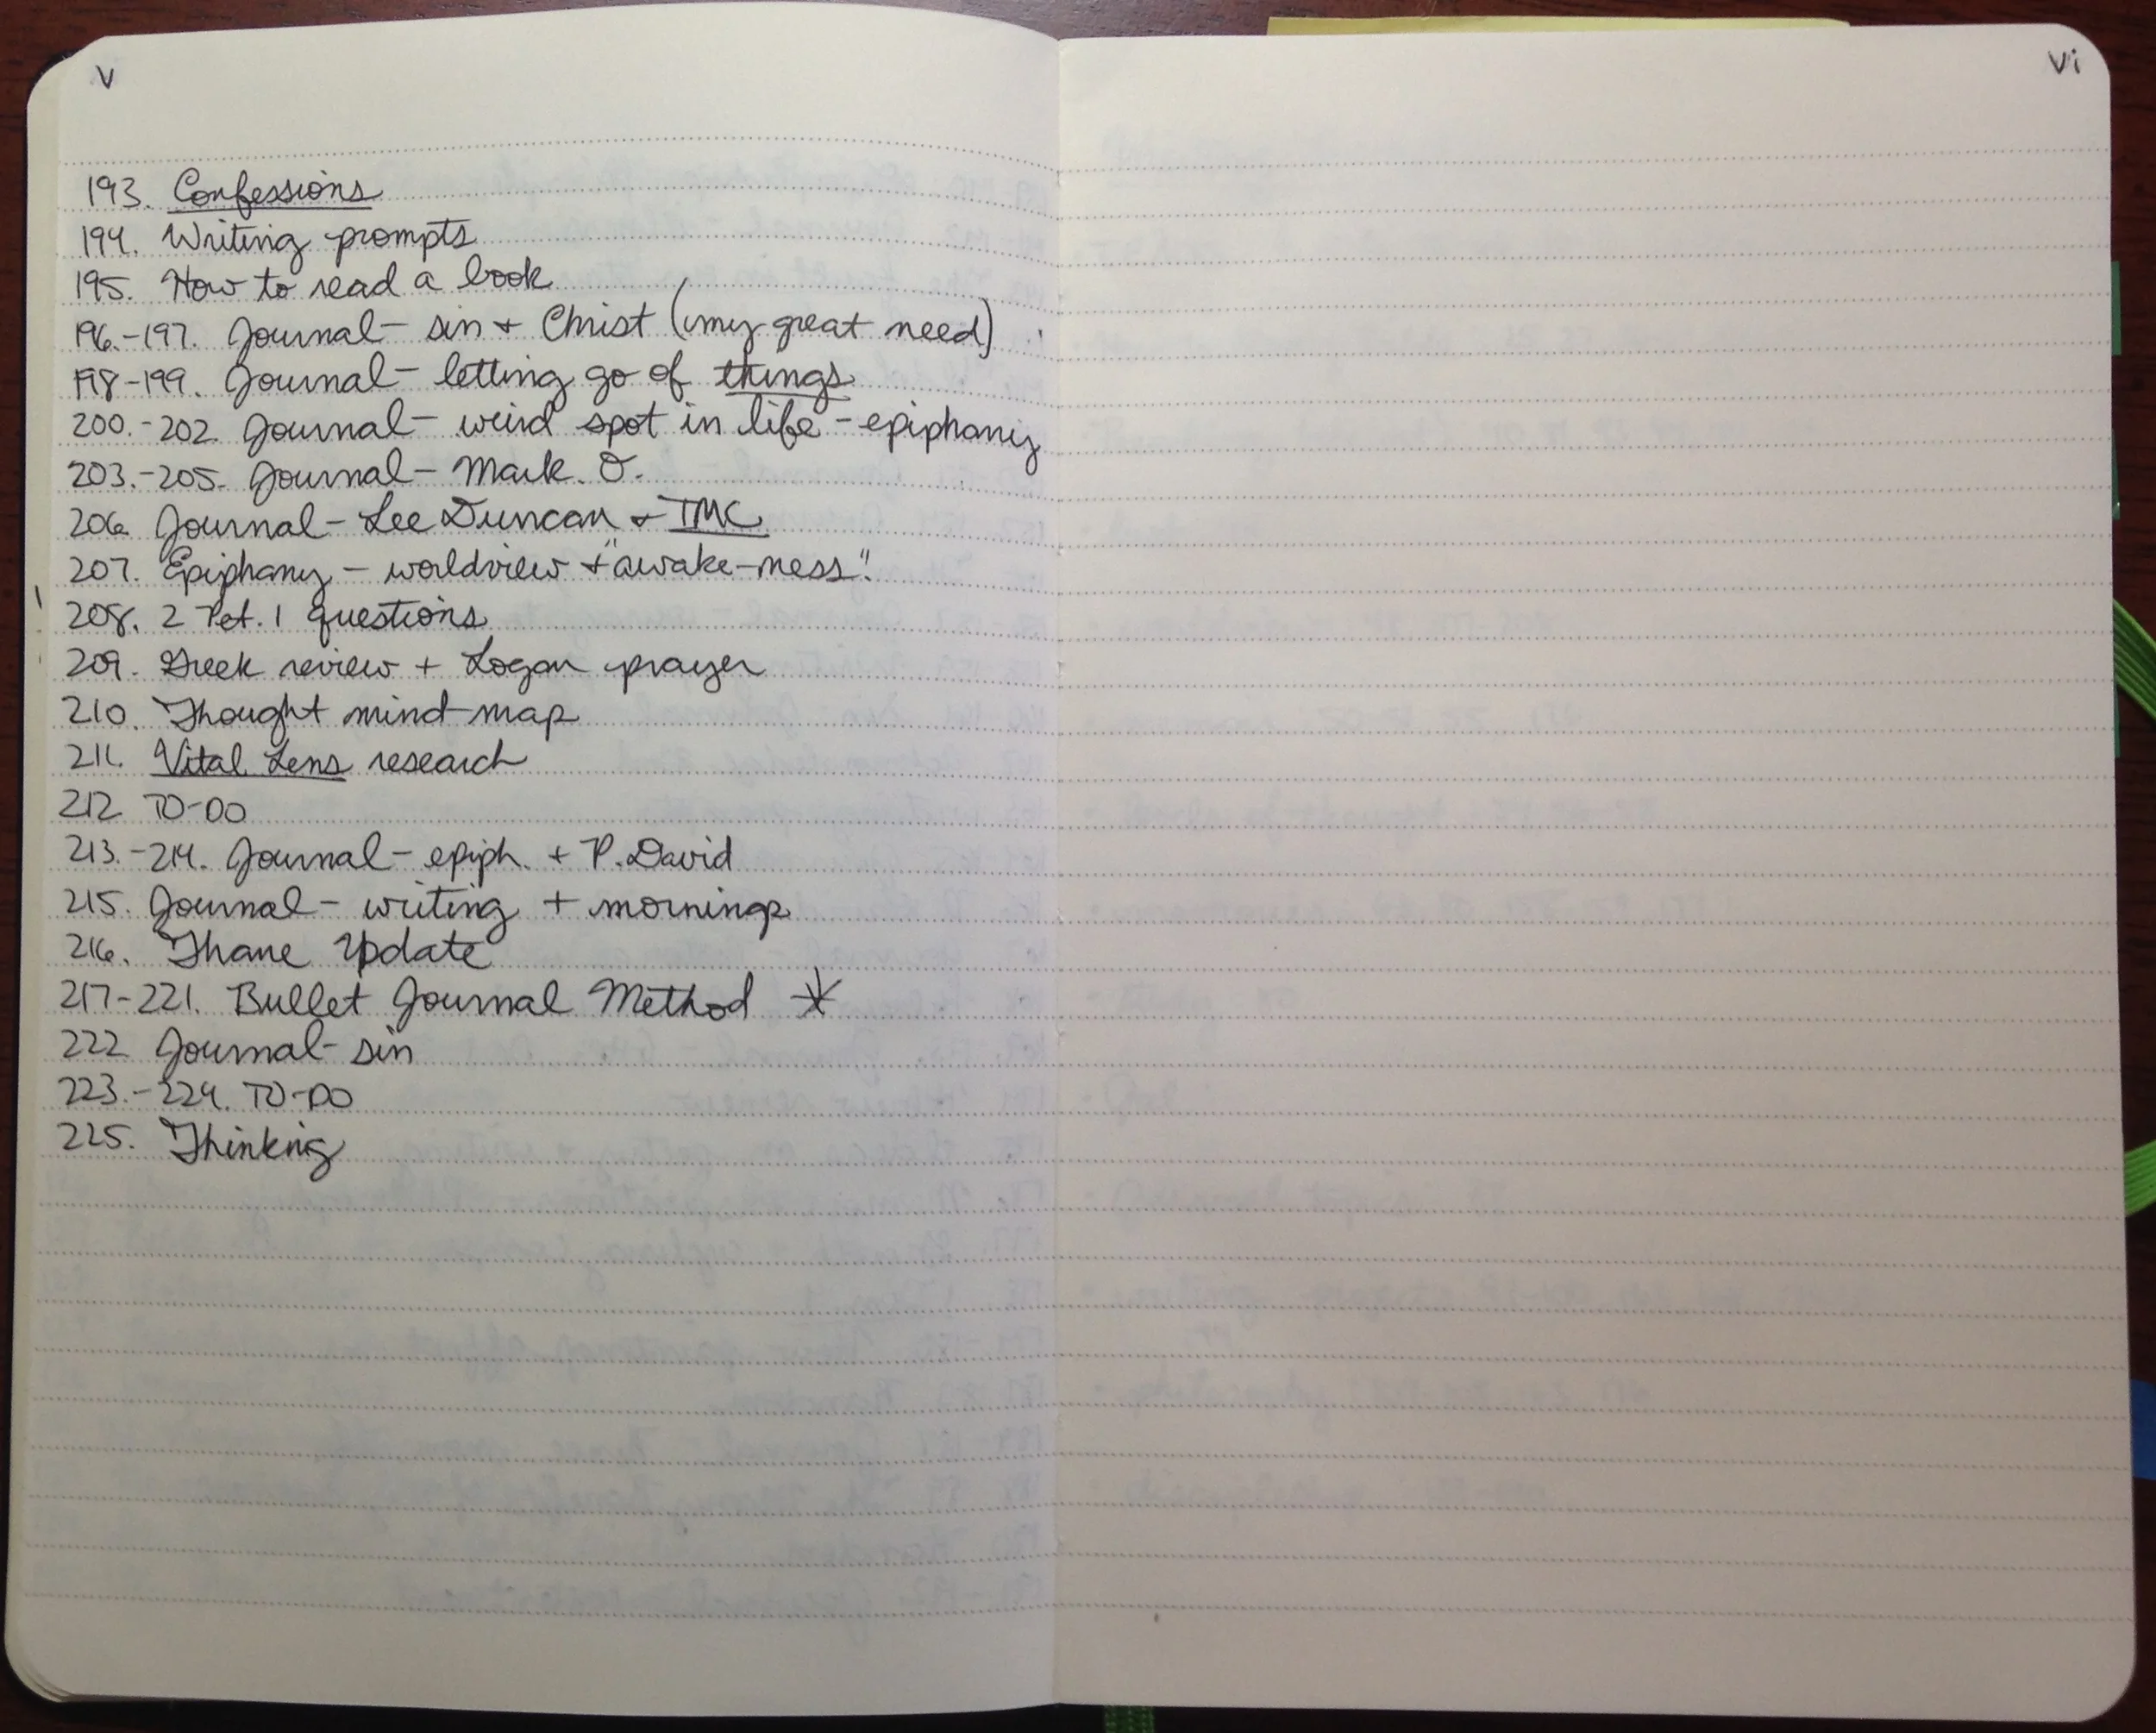 v
193. Confessions
194. Writing prompts
195. How to read a book
196.-197. Journal- sin + Christ (my great need)
198-199. Journal- letting go of things
200.-202. Journal- weird spot in life - epiphany
203.-205. Journal- Mark. O.
206. Journal- Lee Duncan + TMC
207. Epiphany - worldview + "awake-ness".
208. 2 Pet. 1 questions
209. Greek review + Logan prayer
210. Thought mind map
211. Vital Lens research
212. TO-DO
213.-214. Journal- epiph. + P. David
215. Journal- writing + mornings
216. Thane Update
217-221. Bullet Journal Method *
222 Journal- sin
223.-224. TO-DO
225. Thinking
vi